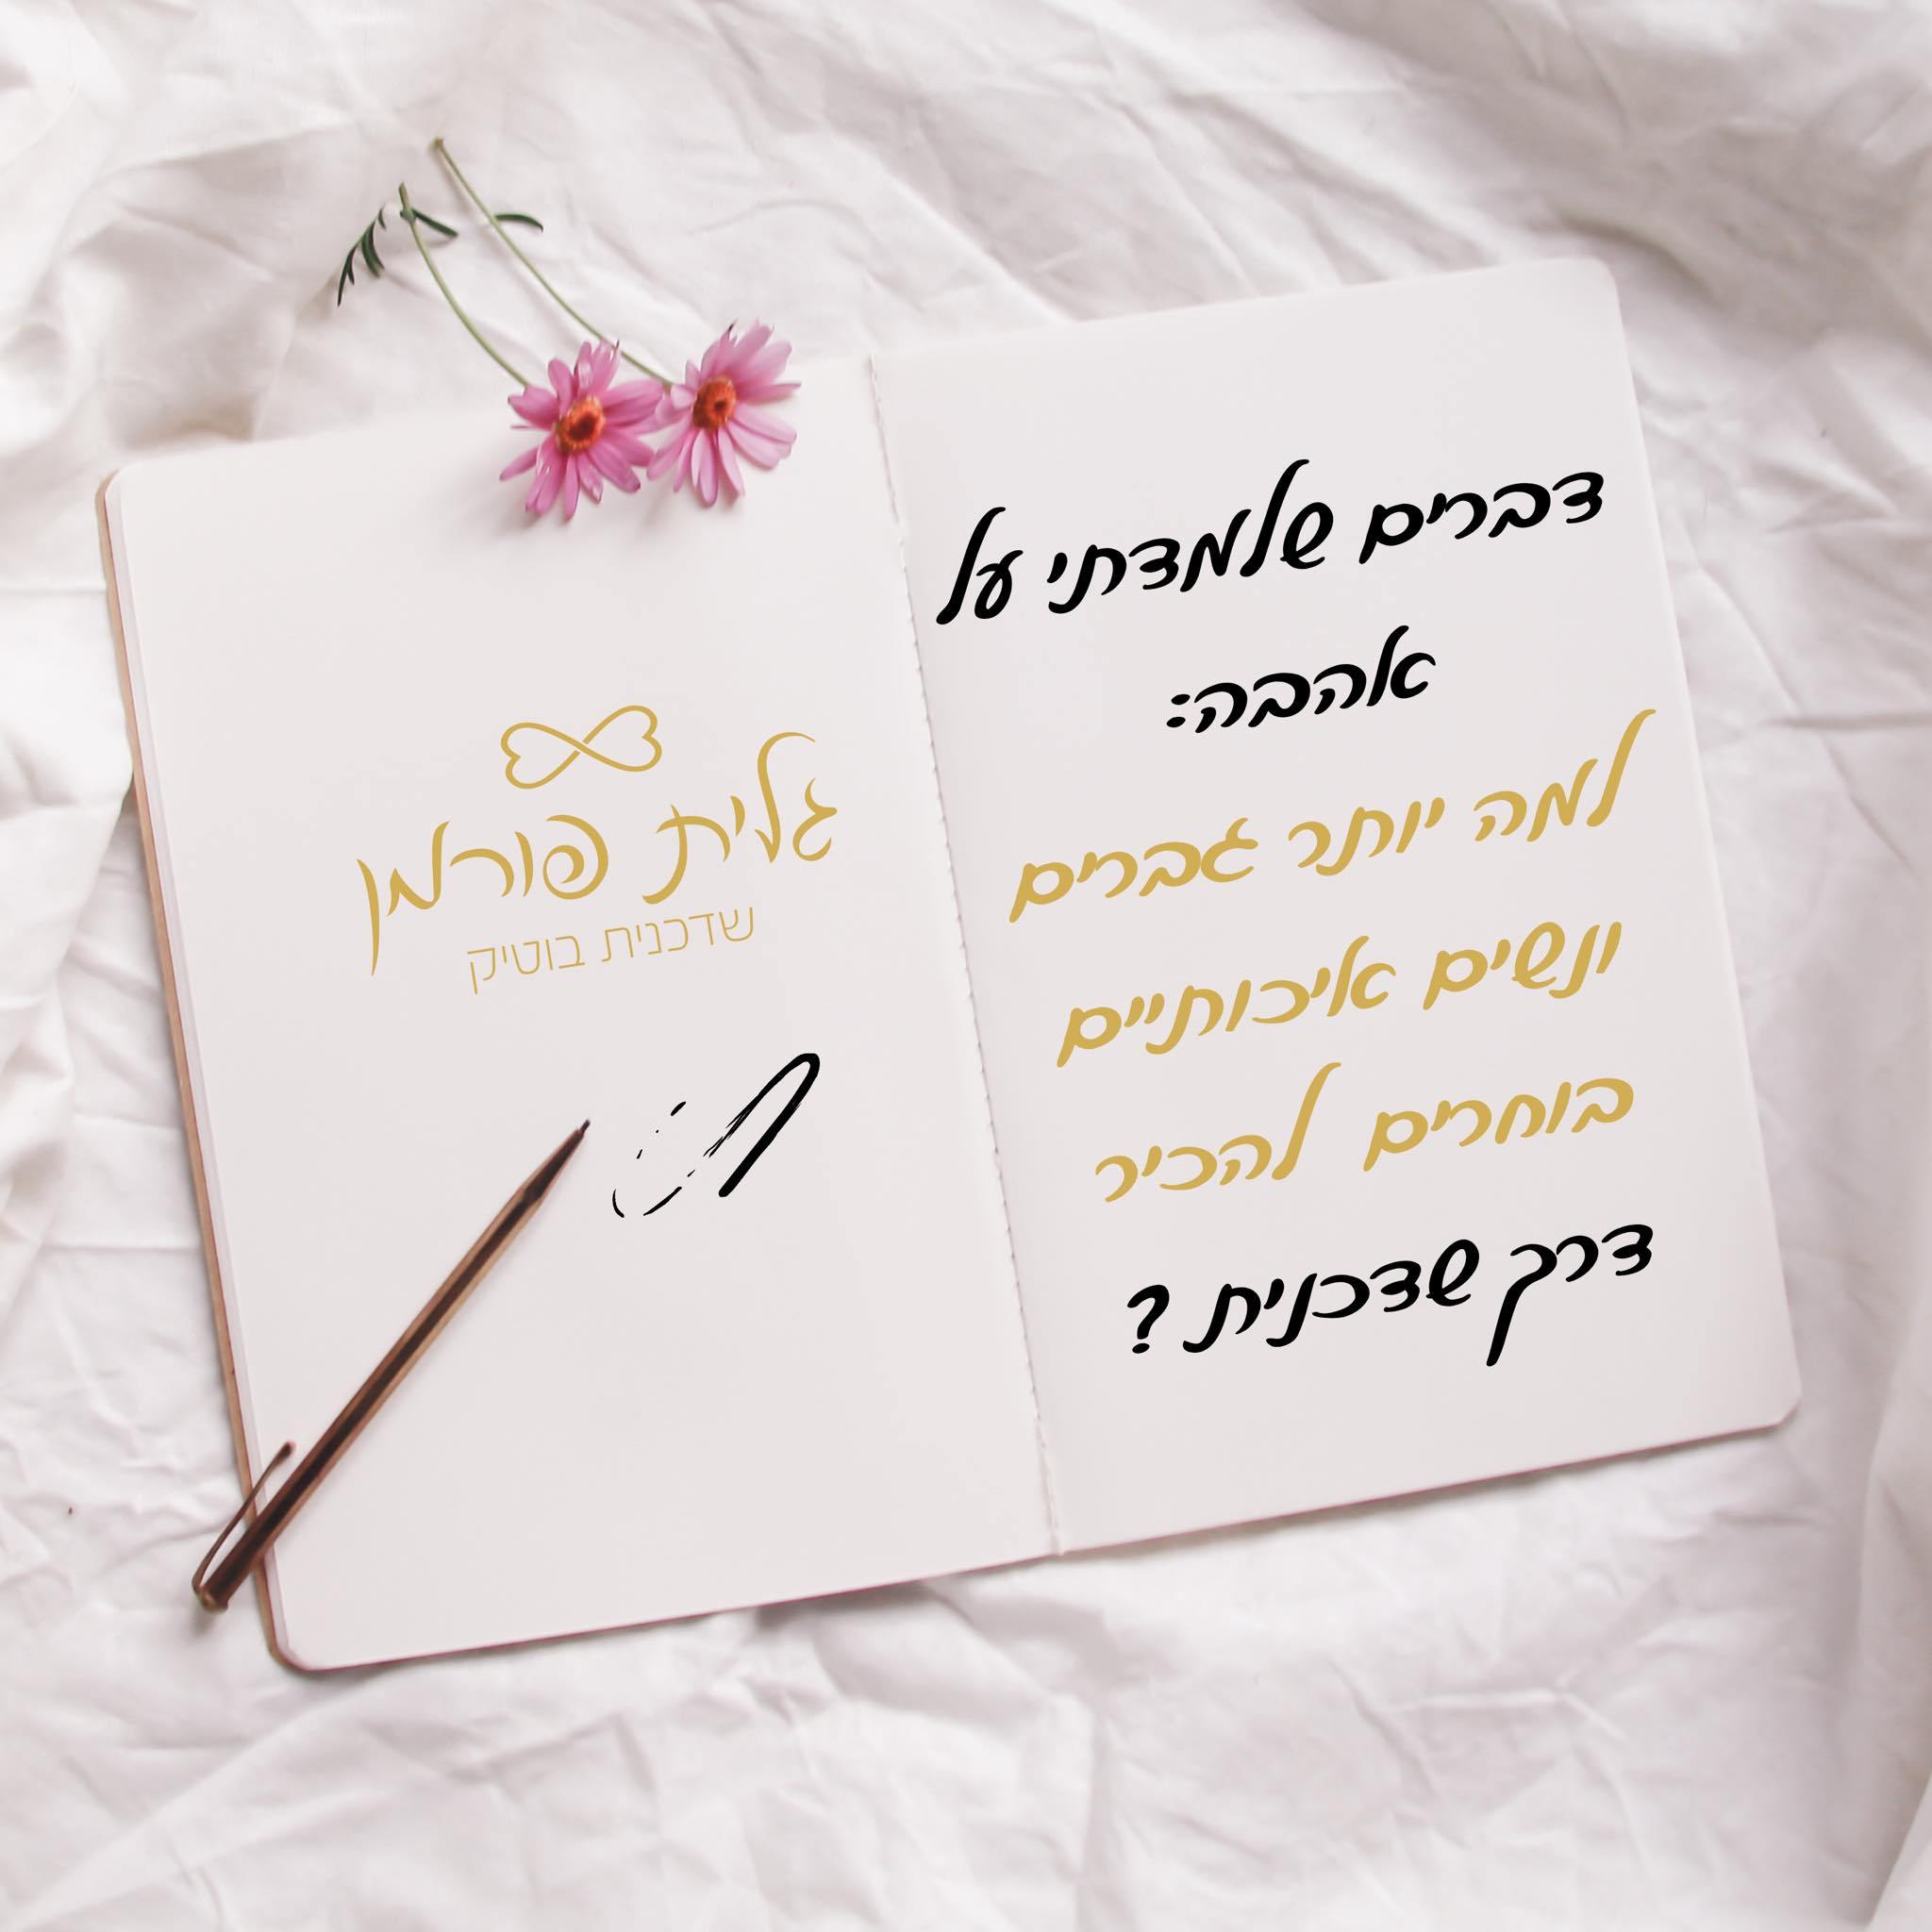 דברים שלמדתי על
אהבה:
למה יותר גברים
ונשים איכותיים
בוחרים להכיר
דרך שדכנית ?
גלית פורמן
שדכנית בוטיק